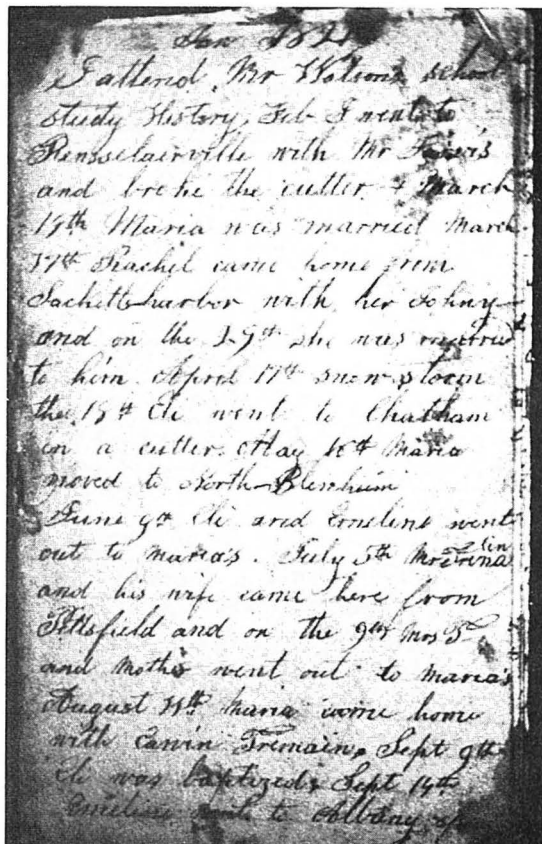 Jan 182
I attend Mr Watsons school
study History, Feb I went to
Rensselairville with Mr
and broke the cutter & March
Maria was married March
17th Rachel came home from
Sacketts harbor with her Johny
and on the 19th she was married
to him. April 17th snow storm
the 18th Eli went to Chatham
in a cutter. May 16th Maria
moved to North-Blenheim
June 9th Eli and Emeline went
out to Maria's. July 5th Mr
and his wife came here from
Pittsfield and on the 9th Mrs T
and Mother went out to Maria's
August Maria came home
with Edwin Tremain, Sept 9th
Eli was baptized, Sept 14th
Emeline went to Albany